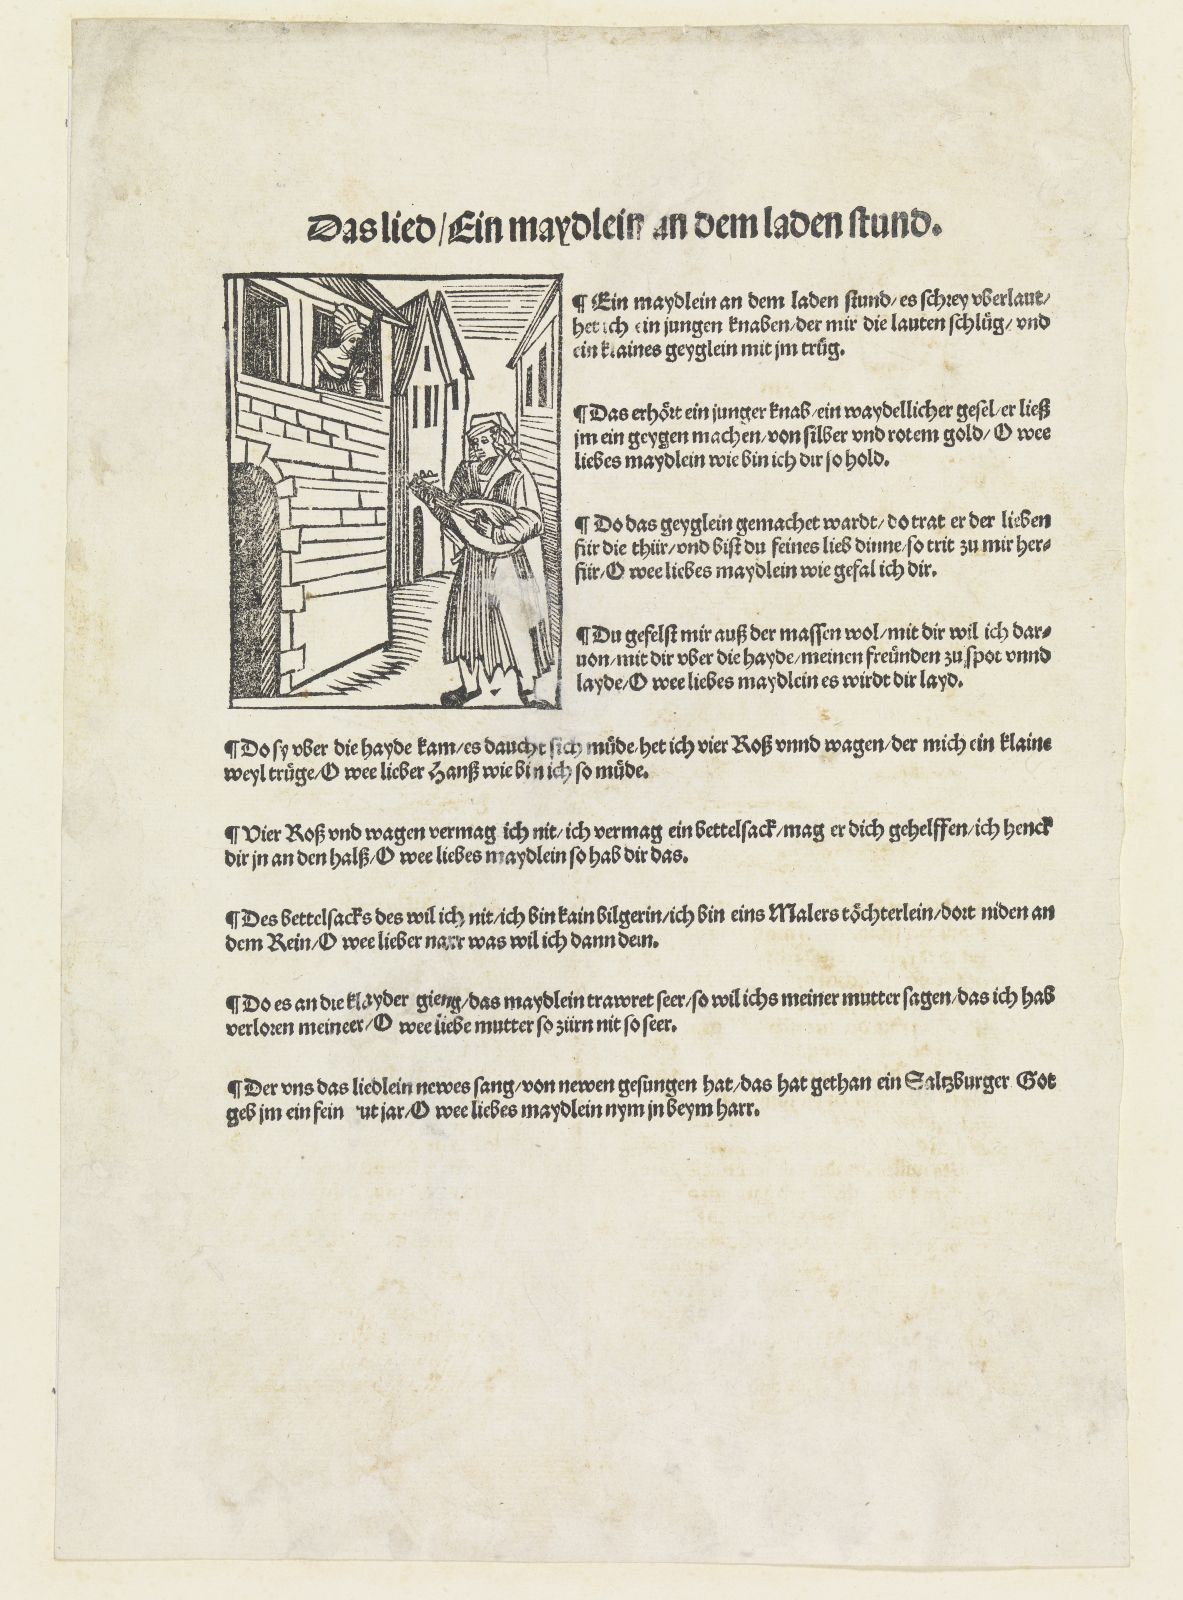 Das lied/Ein maydlein an dem laden stund.
¶ Ein maydlein an dem laden stund/es schrey vberlaut/
het ich ein jungen knaben/der mir die lauten schlůg/vnd
ein klaines geyglein mit jm trůg.
¶ Das erhört ein junger knab/ein waydellicher gesel/er ließ
jm ein geygen machen/von silber vnd rotem gold/O wee
liebes maydlein wie bin ich dir so hold.
¶ Do das geyglein gemachet wardt/do trat er der lieben
für die thür/vnd bist du feines lieb dinne/so trit zu mir her⸗
für/O wee liebes maydlein wie gefal ich dir.
¶ Du gefelst mir auß der massen wol/mit dir wil ich dar⸗
uon/mit dir vber die hayde/meinen freünden zu spot vnnd
layde/O wee liebes maydlein es wirdt dir layd.
¶ Do sy vber die hayde kam/es daucht sich můde/het ich vier Roß vnnd wagen/der mich ein klaine
weyl trůge/O wee lieber Hanß wie bin ich so můde.
¶ Vier Roß vnd wagen vermag ich nit/ich vermag ein bettelsack/mag er dich gehelffen/ich henck
dir jn an den halß/O wee liebes maydlein so hab dir das.
¶ Des bettelsacks des wil ich nit/ich bin kain bilgerin/ich bin eins Malers töchterlein/dort niden an
dem Rein/O wee lieber narr was wil ich dann dein.
¶ Do es an die klayder gieng/das maydlein trawret seer/so wil ichs meiner mutter sagen/das ich hab
verloren mein eer/O wee liebe mutter so zürn nit so seer.
¶ Der vns das liedlein newes sang/von newen gesungen hat/das hat gethan ein Saltzburger Got
geb jm ein fein jar/O wee liebes maydlein nym jn beym harr.